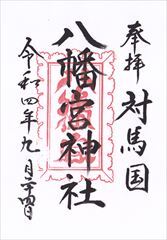 奉拝 対馬国
八幡宮神社
令和四年九月二十四日